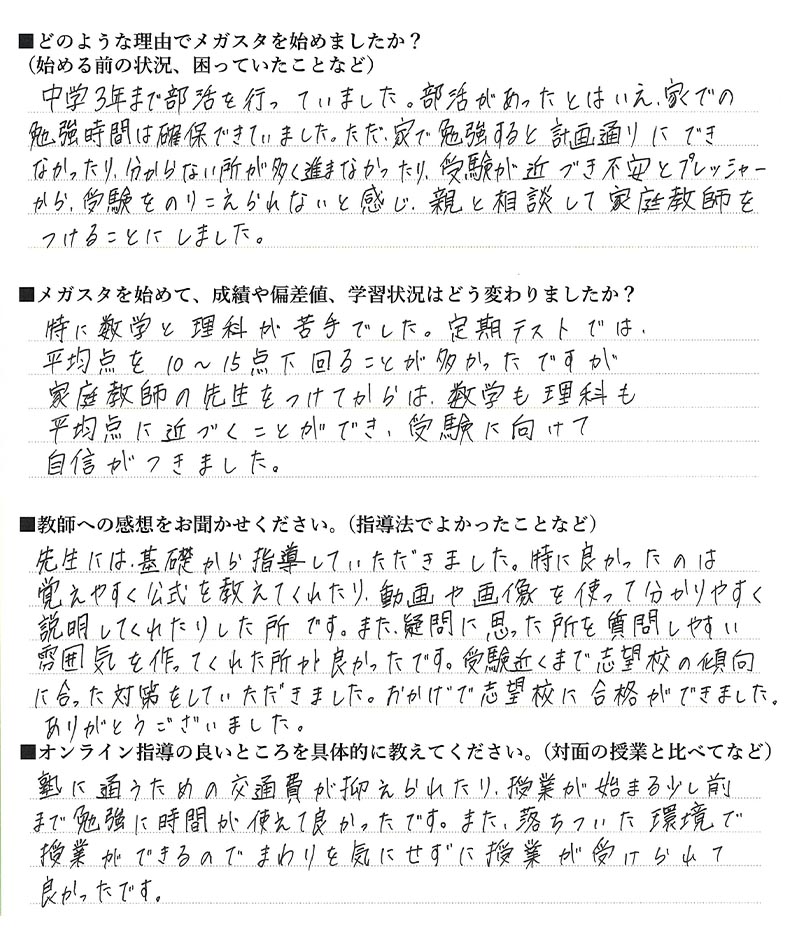 ■どのような理由でメガスタを始めましたか？
（始める前の状況、困っていたことなど）
中学3年まで部活を行っていました。部活があったとはいえ、家での
勉強時間は確保できていました。ただ、家で勉強すると計画通りにでき
なかったり、分からない所が多く進まなかったり、受験が近づき不安とプレッシャー
から、受験をのりこえられないと感じ、親と相談して家庭教師を
つけることにしました。
■メガスタを始めて、成績や偏差値、学習状況はどう変わりましたか？
特に数学と理科が苦手でした。定期テストでは、
平均点を10～15点下回ることが多かったですが
家庭教師の先生をつけてからは、数学も理科も
平均点に近づくことができ、受験に向けて
自信がつきました。
■教師への感想をお聞かせください。（指導法でよかったことなど）
先生には、基礎から指導していただきました。特に良かったのは
覚えやすく公式を教えてくれたり、動画や画像を使って分かりやすく
説明してくれたりした所です。また、疑問に思った所を質問しやすい
雰囲気を作ってくれた所が良かったです。受験近くまで志望校の傾向
に合った対策をしていただきました。おかげで志望校に合格ができました。
ありがとうございました。
■オンライン指導の良いところを具体的に教えてください。（対面の授業と比べてなど）
塾に通うための交通費が抑えられたり、授業が始まる少し前
まで勉強に時間が使えて良かったです。また、落ちついた環境で
授業ができるのでまわりを気にせずに授業が受けられて
良かったです。